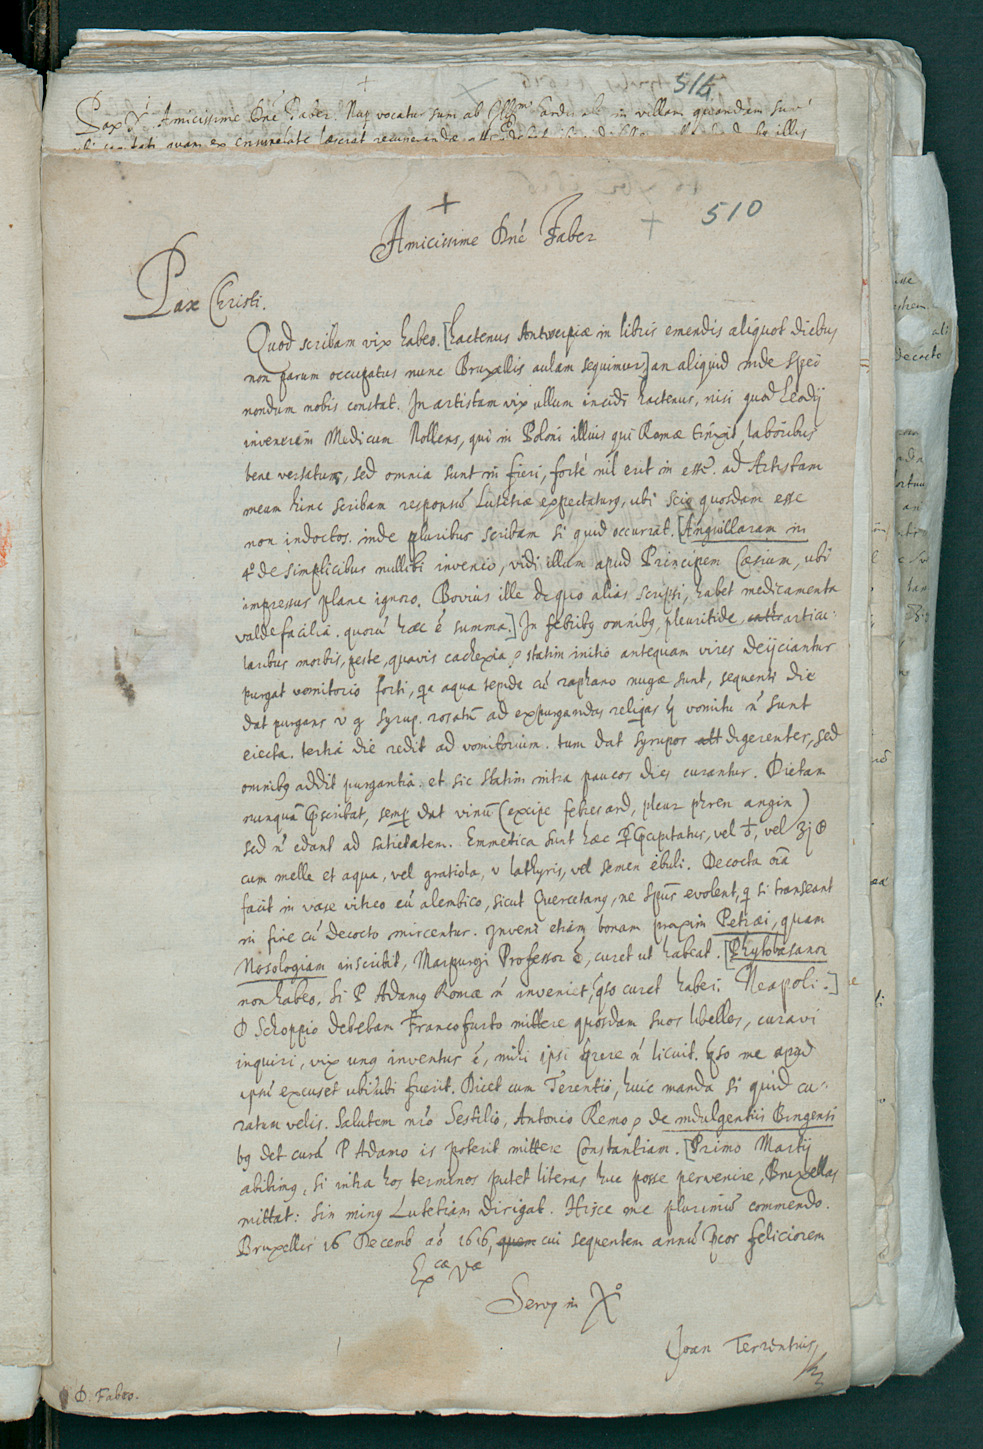 514
Pax Xi Amicissime Dne Faber. Nup vocatus sum ab Illmo Card in villam quandam
510
Amicissime Dne Faber
Pax Christi.
Quod scribam vix habeo. [hactenus Antwerpiæ in libris emendis aliquot diebus
non parum occupatus nunc Bruxellis aulam sequimur] an aliquid inde spei
nondum nobis constat. In artistam vix ullum incidi hactenus, nisi quod Leodij
invenerim Medicum Nollens, qui in Poloni illius qui Romæ laboribus
bene versatur, sed omnia sunt in fieri, forte nil erit in esse. ad Artistam
meum hinc scribam responsu Lutetiæ expectaturq, ubi scio quosdam esse
non indoctos. inde pluribus scribam si quid occurrat. [Anguillaram in
4º de simplicibus nullibi invenio, vidi illum apud Principem Cæsium, ubi
impressus plane ignoro. Bovius ille de quo alias scripsi, habet medicamenta
valde facilia. quoru hæc é summa.] In febribq omnibq, pleuritide, articu-
laribus morbis, peste, quavis cachexia, statim initio antequam vires deijciantur
purgat vomitorio forti, qa aqua tepida cu raphano nugæ sunt, sequenti die
dat purgans v g syrup. rosatu ad expurgandas reliqas q vomitu n sunt
eiecta. tertia die redit ad vomitorium. tum dat syrupos digerentes, sed
omnibq addit purgantia. et sic statim intra paucos dies curantur. Dietam
nunqua pscribat, semp dat vinu (excipe febres ard, pleur phren angin)
sed n edant ad satietatem. Emmetica sunt hæc ☿ pcipitatus, vel ♁, vel
cum melle et aqua, vel gratiola, v lathyris, vel semen ebuli. Decocta oia
facit in vase vitreo cu alembico, sicut Quercetanq, ne spus evolent, q si transeant
in fine cu decocto miscentur. Inveni etiam bonam praxim Petræi, quam
Nosologiam inscribit, Marpurgi Professor é, curet ut habeat. [Phytobasanon
non habeo. Si P Adamq Romæ n inveniet, qso curet haberi Neapoli.]
D Schoppio debebam Francofurto mittere quosdam suos libellos, curavi
inquiri, vix unq inventus é, mihi ipsi qrere n licuit. qso me apud
ipsu excuset ubiubi fuerit. Dicet cum Terentio, huic manda si quid cu-
ratum velis. Salutem nro Sestilio, Antonio Remo, de indulgentiis Bingensi
bq det cura P Adamo is poterit mittere Constantiam. [Primo Martij
abibimq, si intra hos terminos putet literas huc posse pervenire, Bruxellas
mittat: sin minq Lutetiam dirigat. Hisce me plurimu commendo.
Bruxellis 16 Decemb aô 1616, quem cui sequentem annu pcor feliciorem
Exca Væ
Servq in Xº
Joan Terrentius
D. Fabro.